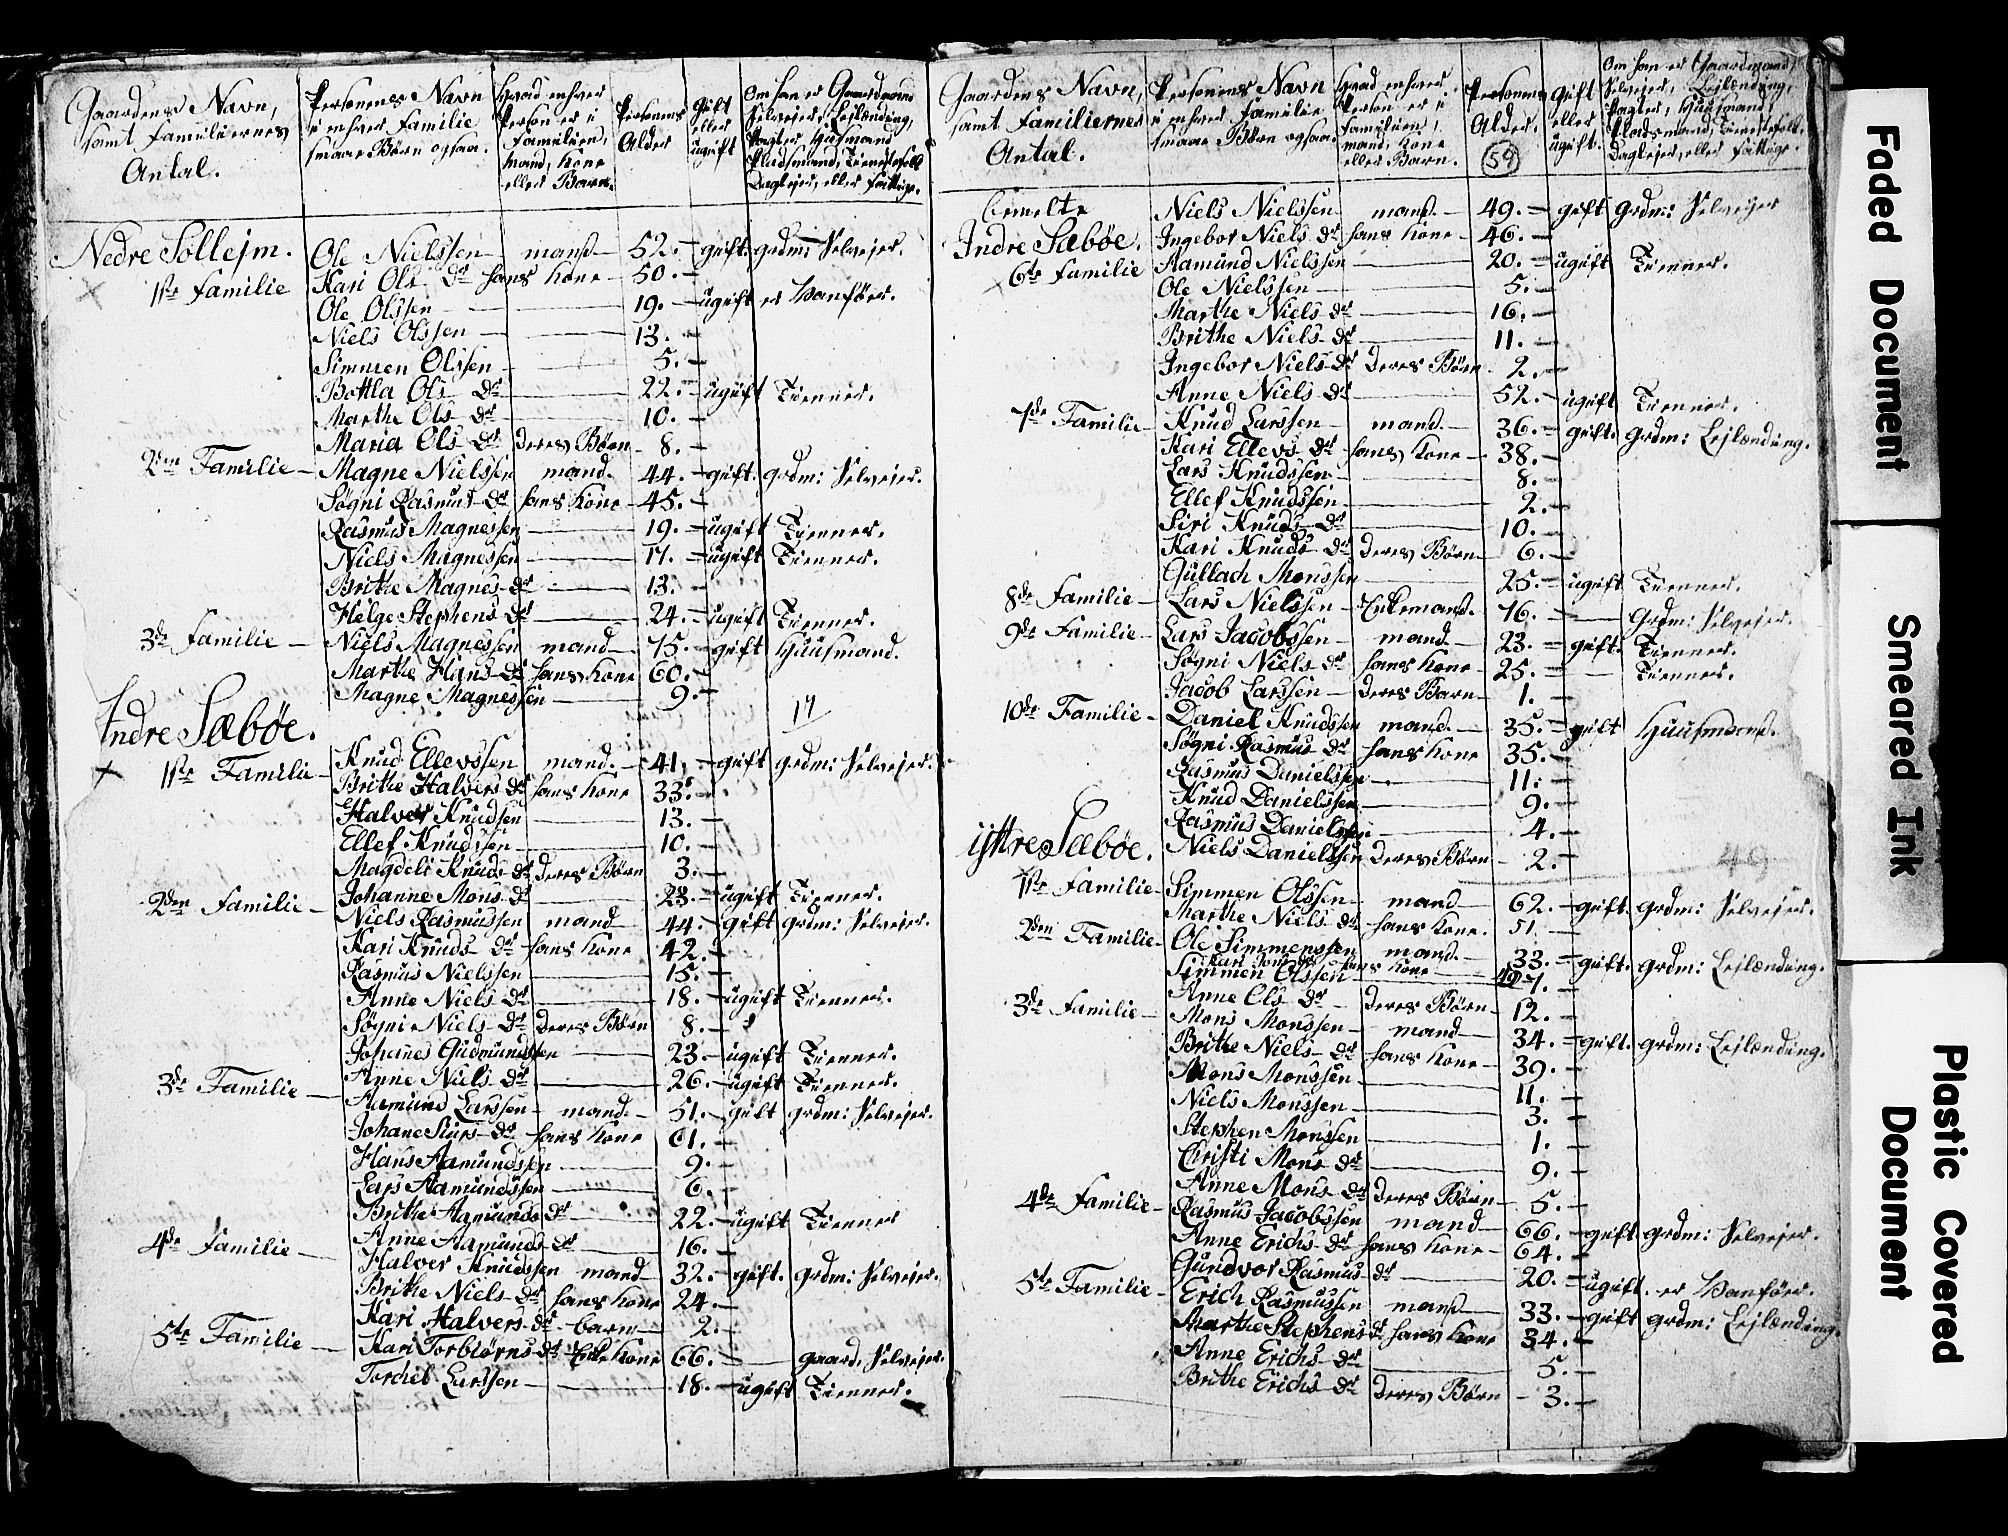 Gaardens Navn, samt Familiernes Antal. | Personens Navn i enhver Familie smaae Børn ogsaa. | Hvad enhver Person er i Familien, Mand, Kone eller Barn. | Personens Alder | Gift eller ugift | Om han er Gaardmand Selvejer, Lejlænding, Pagter, Huusmand Pladsmand, Tienestefolk Daglejer, eller fattige.
Nedre Sollejm.
1ste Familie Ole Nielssen mand 52. gift grdm: Selvejer.
Kari Ols Dr hans Kone 50.
Ole Olssen 19. ugift er Vanfør.
Niels Olssen 13.
Simmen Olssen 5.
Bottla Ols Dr 22. ugift Tienner.
Marthe Ols Dr 10.
Maria Ols Dr deres Børn 8.
2den Familie Magne Nielssen mand. 44. gift. grdm: Selvejer.
Søgni Rasmus Dr hans Kone 45.
Rasmus Magnessen 19. ugift Tienner.
Niels Magnessen 17. ugift Tienner.
Brithe Magnes Dr 13.
Helge Stephens Dr 24. ugift Tienner.
3de Familie Niels Magnessen mand 75. gift Huusmand.
Marthe Hans Dr hans Kone 60.
Magne Magnessen 9.
17
Indre Sæbøe.
1ste Familie Knud Ellevssen mand. 41. gift grdm: Selvejer.
Brithe Halvors Dr hans Kone 33.
Halvor Knudsen 13.
Ellef Knudssen 10.
Magdeli Knuds Dr deres Børn 3.
Johanne Mons Dr 23. ugift Tienner.
2den Familie Niels Rasmussen mand 44. gift grdm: Selvejer.
Kari Knuds Dr hans Kone 42.
Rasmus Nielssen 15.
Anne Niels Dr 18. ugift Tienner.
Søgni Niels Dr deres Børn 8.
Johanes Gudmundssen 23. ugift Tienner.
Anne Niels Dr 26. ugift Tienner.
3de Familie Aamund Larssen mand. 51. gift grdm: Selvejer.
Johane Siurs Dr hans Kone 61.
Hans Aamundssen 9.
Lars Aamundssen 6.
Brithe Aamunds Dr 22. ugift Tienner
Anne Aamunds Dr 16.
4de Familie Halvor Knudssen mand 32. gift. grdm: Selvejer.
Brithe Niels Dr hans Kone 24.
Kari Halvors Dr barn 2.
5te Familie Kari Torbiørns Dr Enke Kone 66. gaard, Selvejer.
Torchel Larssen 18. ugift Tienner.
Gaardens Navn, samt Familiernes Antal. | Personens Navn i enhver Familie smaae Børn ogsaa. | Hvad enhver Person er i Familien, mand, Kone eller Barn. | Personens Alder. | Gift eller ugift. | Om han er Gaardmand, Selvejer, Lejlænding, Pagter, Huusmand, Pladsmand, Tienestefolk Daglejer, eller fattige.
59
bemelte Niels Nielssen mand. 49. gift grdm: Selvejer
Indre Sæbøe. Ingebor Niels Dr hans Kone 46.
6te Familie Aamund Nielssen 20. ugift Tienner.
Ole Nielssen 5.
Marthe Niels Dr 16.
Brithe Niels Dr 11.
Ingebor Niels Dr deres Børn 2.
Anne Niels Dr 52. ugift Tienner.
7de Familie Knud Larssen mand. 36. gift. grdm: Lejlænding.
Kari Ellevs Dr hans Kone 38.
Lars Knudssen 8.
Ellef Knudssen 2.
Siri Knuds Dr 10.
Kari Knuds Dr deres Børn 6.
Gullach Monssen 25. ugift Tienner.
8de Familie Lars Nielssen Enkemand. 76. Grdm: Selvejer.
9de Familie Lars Jacobssen mand 23. gift. Tienner.
Søgni Niels Dr hans Kone 25. Tienner.
Jacob Larssen deres Barn 1.
10de Familie Daniel Knudssen mand. 35. gift Huusmand.
Søgni Rasmus Dr hans Kone 35.
Rasmus Danielssen 11.
Knud Danielssen 9.
Rasmus Danielssen 4.
Niels Danielssen deres Børn 2.
49
ijttre Sæbøe.
1ste Familie Simmen Olssen mand 62. gift. grdm: Selvejer.
Marthe Niels Dr hans Kone. 51.
2den Familie Ole Simmenssen mand. 33. gift. grdm: Lejlænding.
Kari Dr hans Kone 40
Simmen Olssen 7.
Anne Ols Dr deres Børn 12.
3de Familie Mons Monssen mand 34. gift. grdm: Lejlænding.
Brithe Niels Dr hans Kone 39.
Mons Monssen 11.
Niels Monssen 3.
Stephen Monssen 1.
Christi Mons Dr 9.
Anne Mons Dr deres Børn 5.
4de Familie Rasmus Jacobssen mand 66. gift grdm: Selvejer.
Anne Erichs Dr hans Kone 64.
Gundvor Rasmus Dr 20. ugift. er Vanfør.
5te Familie Erich Rasmussen mand 33. gift grdm: Lejlænding.
Marthe Stephens Dr hans Kone 34.
Anne Erichs Dr 5.
Brithe Erichs Dr deres Børn 3.
Faded Document
Smeared Ink
Plastic Covered Document